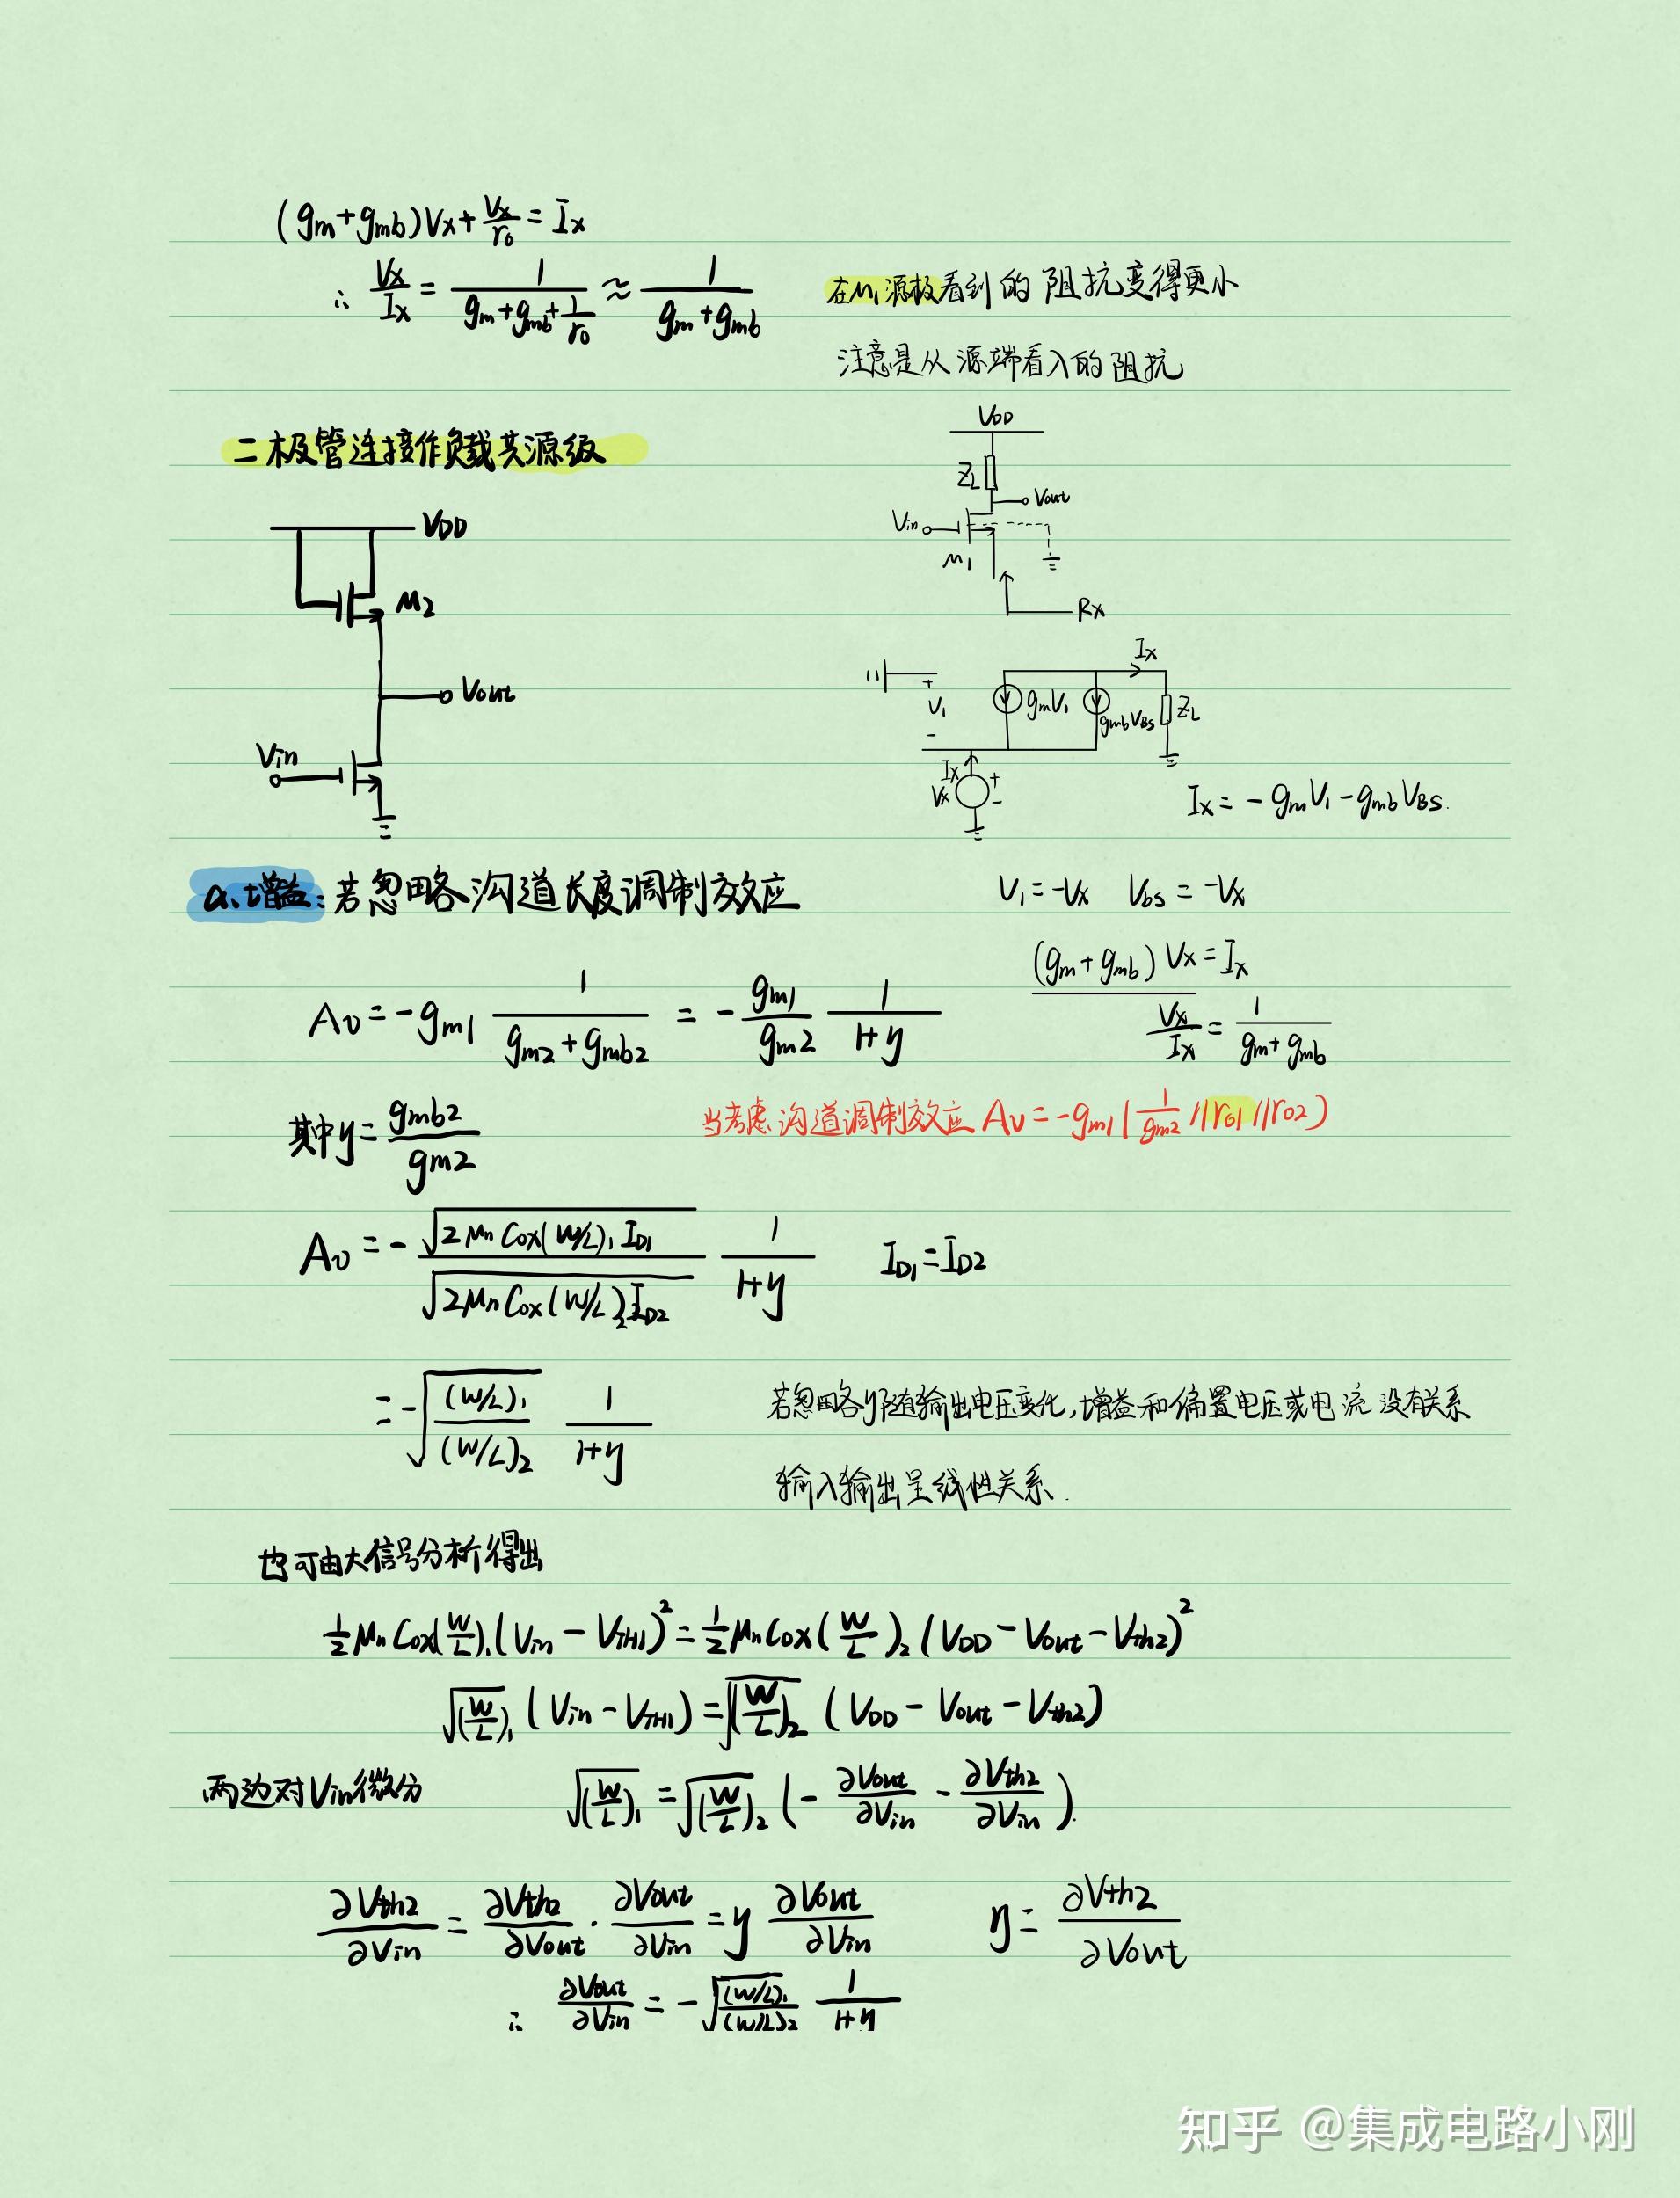 (gm+gmb)Vx+Vx/ro=Ix
∴ Vx/Ix = 1/(gm+gmb+1/ro) ≈ 1/(gm+gmb)
在M1源极看到的阻抗变得更小
注意是从源端看入的阻抗
二极管连接作负载共源级
VDD
M2
Vout
Vin
VDD
ZL
Vout
Vin
M1
Rx
Ix
+
V1
-
gmV1
gmbVBS
ZL
Ix
Vx
+
-
Ix = -gmV1-gmbVBS.
a.增益:若忽略沟道长度调制效应
V1=-Vx Vbs=-Vx
(gm+gmb)Vx=Ix
Vx/Ix = 1/(gm+gmb)
Av=-gm1 1/(gm2+gmb2) = -gm1/gm2 1/(1+η)
其中η=gmb2/gm2
当考虑沟道调制效应 Av=-gm1(1/gm2//ro1//ro2)
Av=-√(2μnCox(W/L)1ID1)/√(2μnCox(W/L)2ID2) 1/(1+η) ID1=ID2
=-√((W/L)1/(W/L)2) 1/(1+η)
若忽略η随输出电压变化,增益和偏置电压或电流没有关系
输入输出呈线性关系.
也可由大信号分析得出
1/2μnCox(W/L)1(Vin-VTH1)²=1/2μnCox(W/L)2(VDD-Vout-Vth2)²
√(W/L)1(Vin-VTH1)=√(W/L)2(VDD-Vout-Vth2)
两边对Vin微分 √(W/L)1=√(W/L)2(-∂Vout/∂Vin-∂Vth2/∂Vin).
∂Vth2/∂Vin=∂Vth2/∂Vout·∂Vout/∂Vin=η∂Vout/∂Vin η=∂Vth2/∂Vout
∴ ∂Vout/∂Vin=-√((W/L)1/(W/L)2) 1/(1+η)
知乎 @集成电路小刚